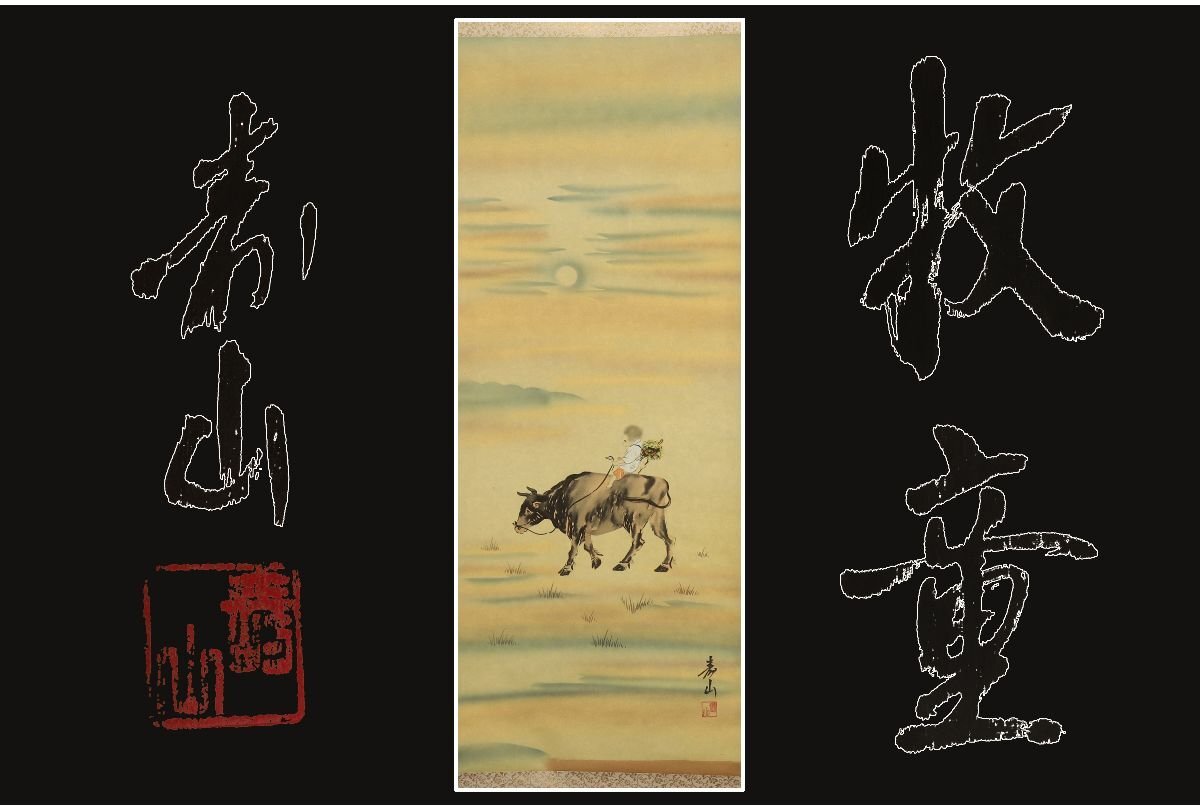 牧童
寿山
寿山
壽山